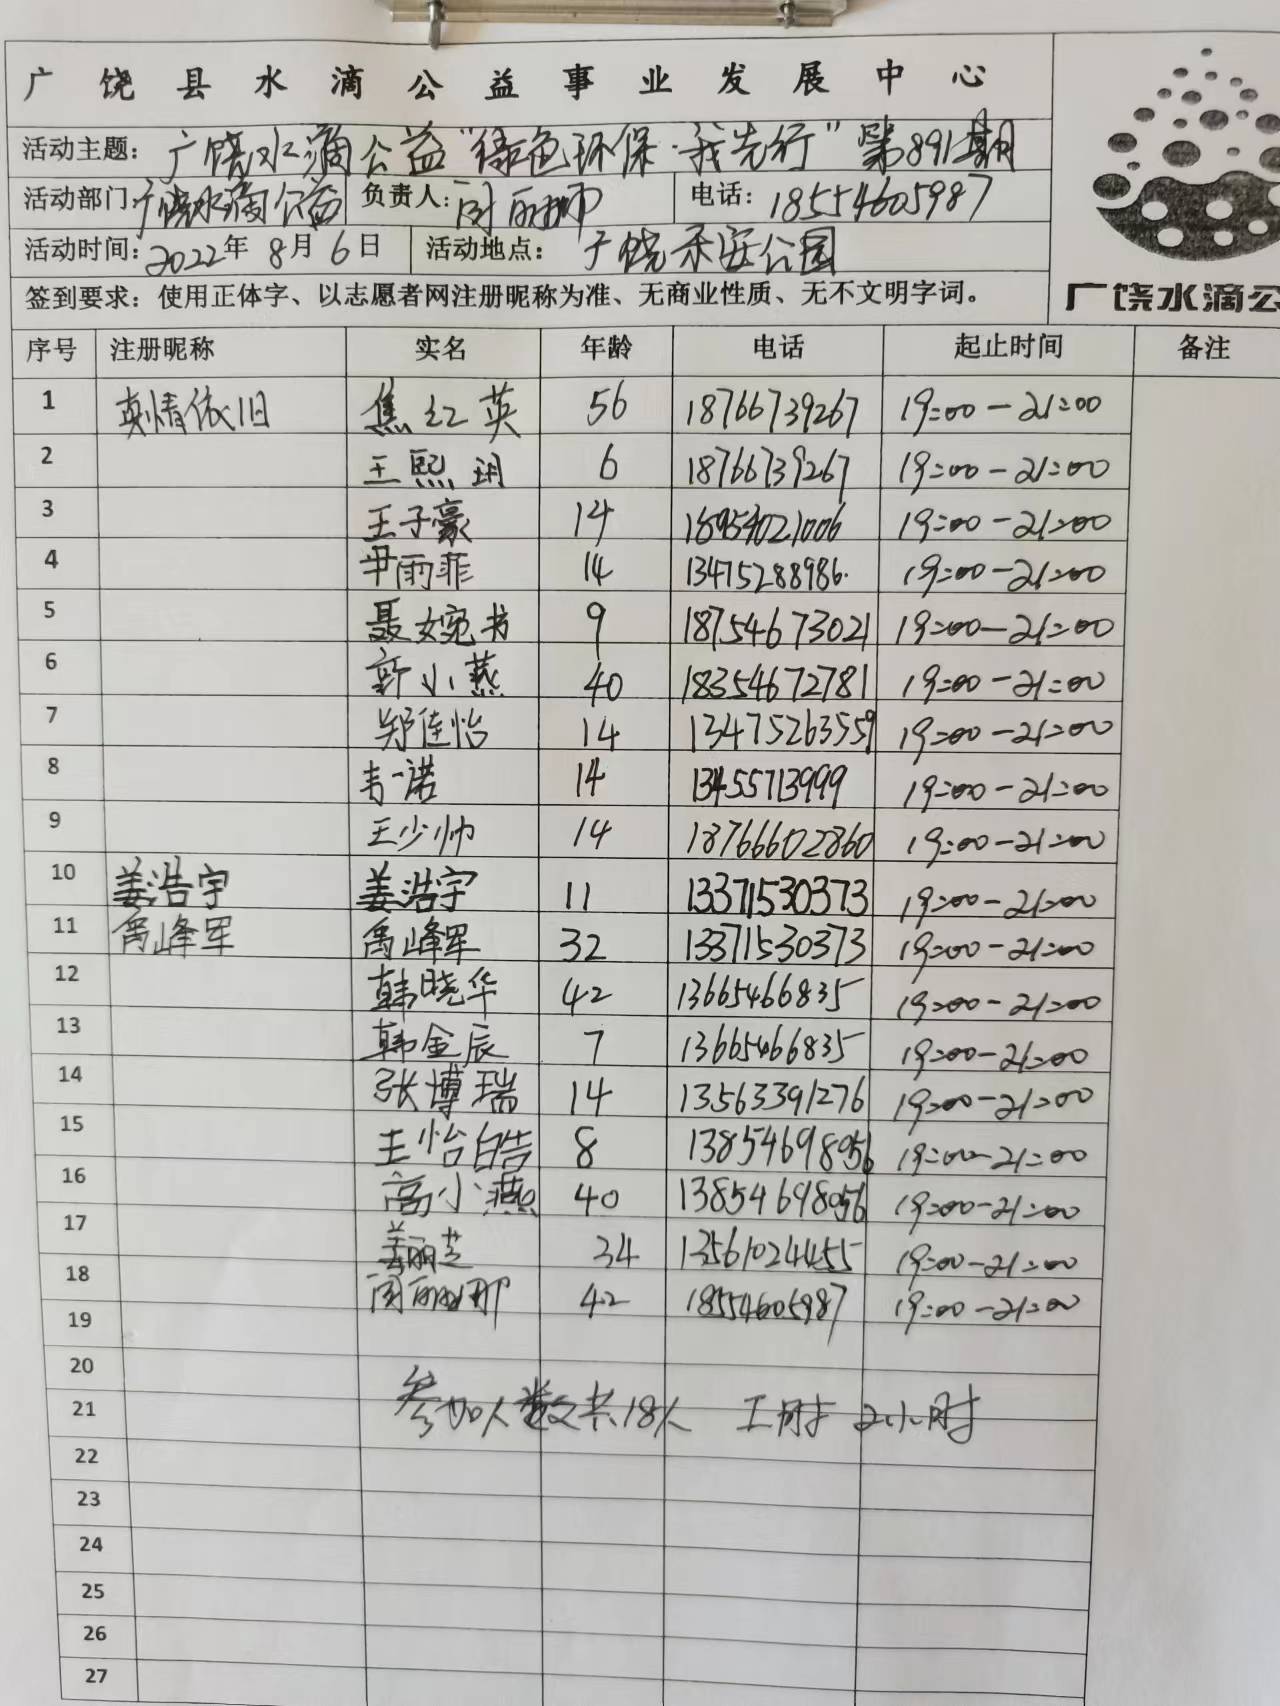 广饶县水滴公益事业发展中心
活动主题：广饶水滴公益“绿色环保·我先行”第891期
活动部门：广饶水滴公益 负责人： 电话：18554605987
活动时间：2022年8月6日 活动地点：广饶乐安公园
签到要求：使用正体字、以志愿者网注册昵称为准、无商业性质、无不文明字词。
广饶水滴公
序号 注册昵称 实名 年龄 电话 起止时间 备注
1 真情依旧 焦红英 56 18766739267 19:00-21:00
2 王熙玥 6 18766739267 19:00-21:00
3 王子豪 14 18954021006 19:00-21:00
4 尹雨菲 14 13475288986 19:00-21:00
5 聂婉书 9 18754673021 19:00-21:00
6 靳小燕 40 18354672781 19:00-21:00
7 郑佳怡 14 13475263559 19:00-21:00
8 一诺 14 13455713999 19:00-21:00
9 王少帅 14 18766602860 19:00-21:00
10 姜浩宇 姜浩宇 11 13371530373 19:00-21:00
11 禹峰军 禹峰军 32 13371530373 19:00-21:00
12 韩晓华 42 13665466835 19:00-21:00
13 韩金辰 7 13665466835 19:00-21:00
14 张博瑞 14 13563391276 19:00-21:00
15 王怡皓 8 13854698056 19:00-21:00
16 高小燕 40 13854698056 19:00-21:00
17 姜丽芝 34 13561024455 19:00-21:00
18 周丽娜 42 18554605987 19:00-21:00
19
20
参加人数共18人 工时 2小时
21
22
23
24
25
26
27